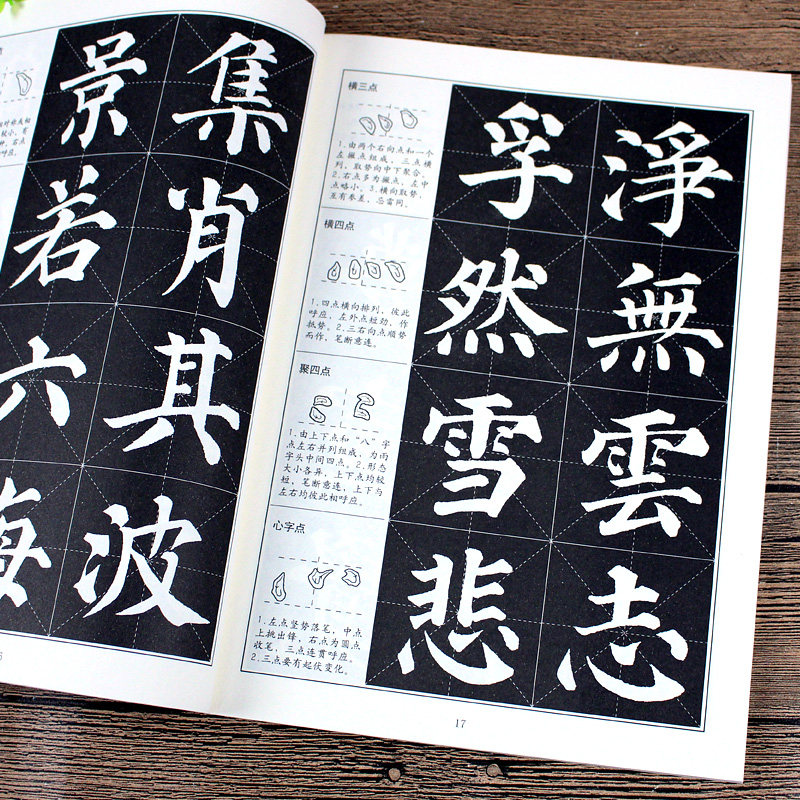 景 集
若 肖
六 其
海 波
横三点
1.由两个右向点和一个
左撇点组成，三点横
列，取势向中下聚合。
2.右点多为撇点，左中
点略小。3.横向取势，
互有参差，忌雷同。
孚 淨
横四点
1.四点横向排列，彼此
呼应，左外点短劲，作
抵势。2.三右向点顺势
而作，笔断意连。
然 無
聚四点
1.由上下点和“八”字
点左右并列组成，为雨
字头中间四点。2.形态
大小各异，上下点均较
短，笔断意连，上下与
左右均彼此相呼应。
雪 雲
心字点
1.左点竖势落笔，中点
上挑出锋，右点为圆点
收笔，三点连贯呼应。
2.三点要有起伏变化。
悲 志
17